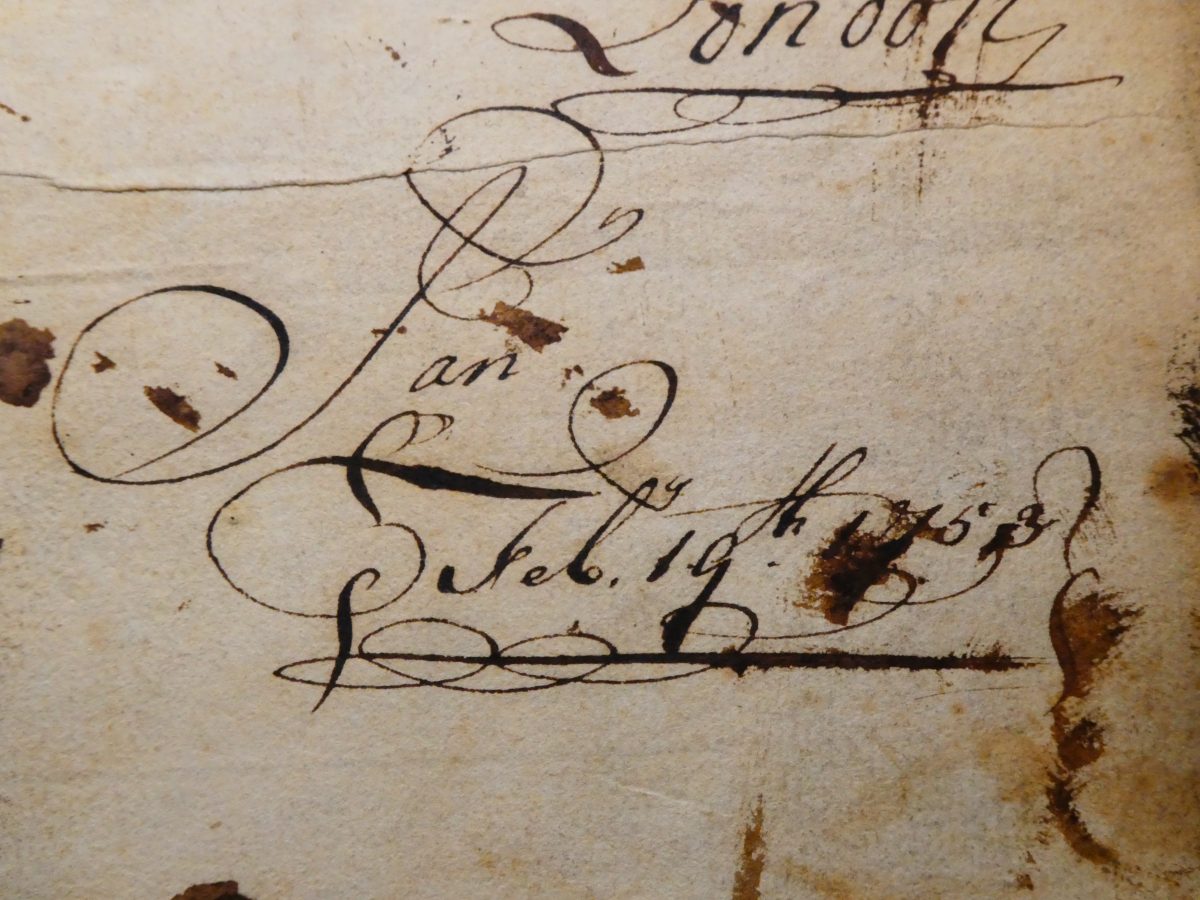 London
Jan
Feb.y 19.th 1753